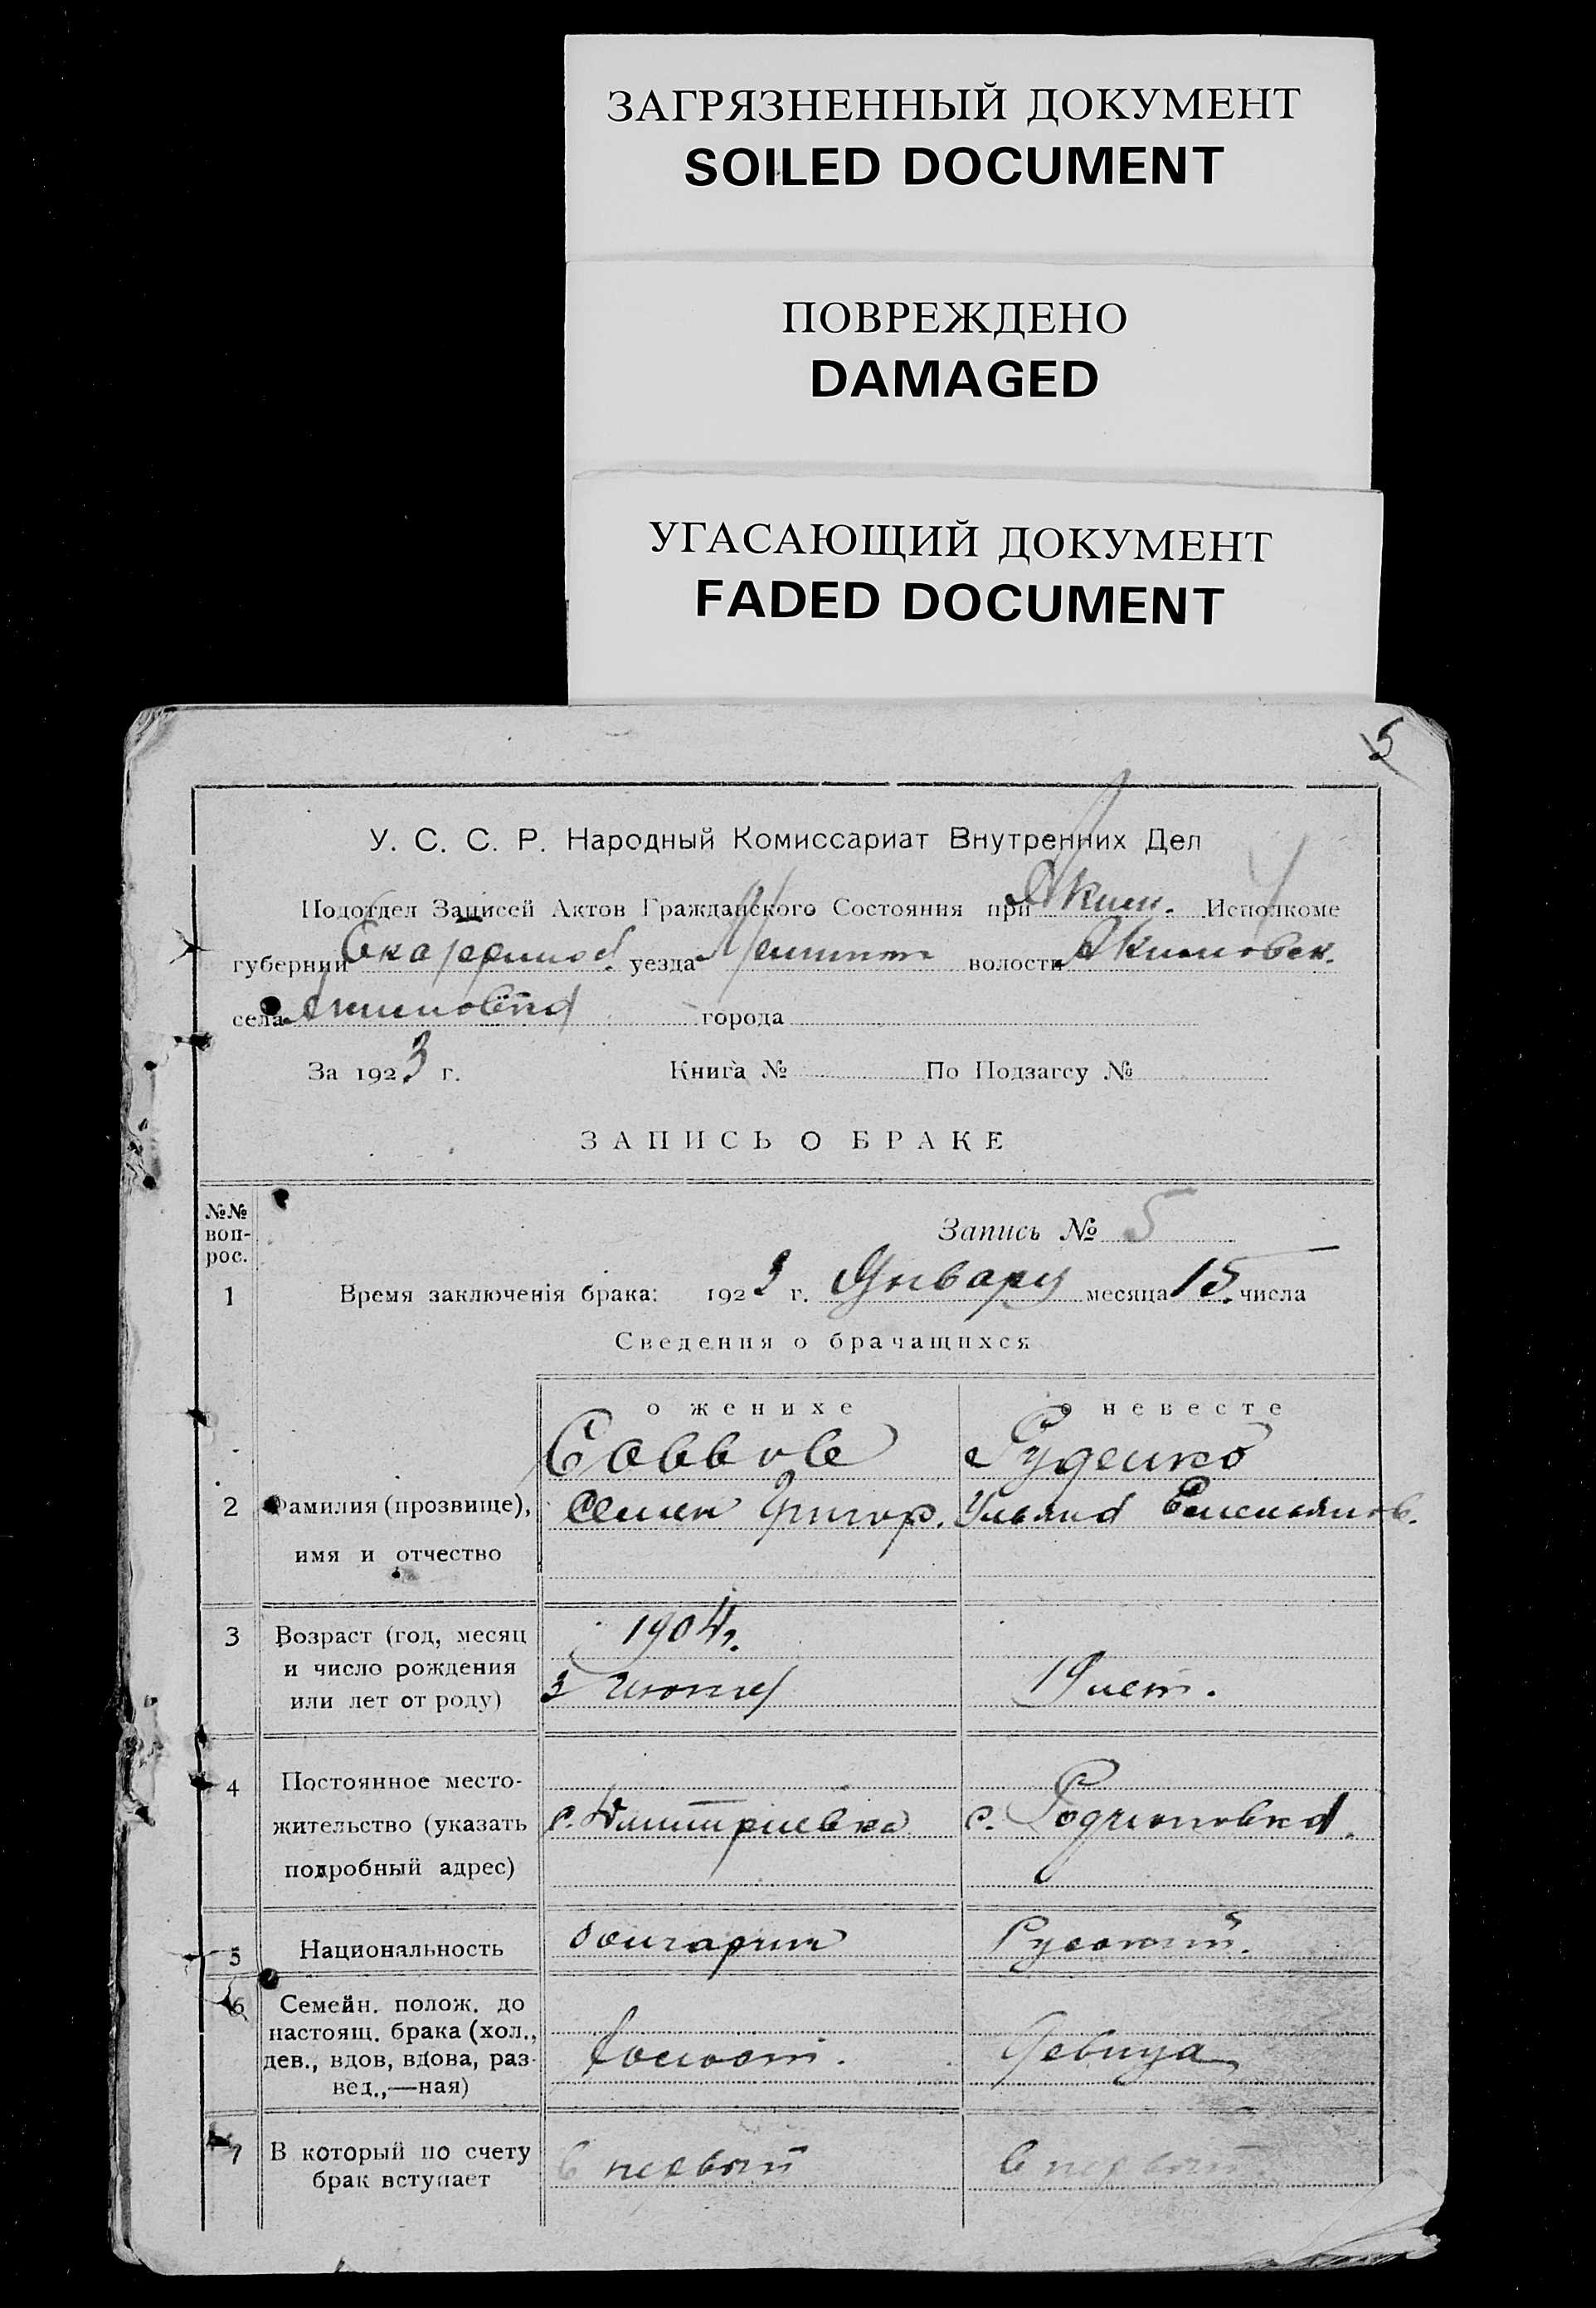 ЗАГРЯЗНЕННЫЙ ДОКУМЕНТ
SOILED DOCUMENT
ПОВРЕЖДЕНО
DAMAGED
УГАСАЮЩИЙ ДОКУМЕНТ
FADED DOCUMENT
5
У. С. С. Р. Народный Комиссариат Внутренних Дел
Подотдел Записей Актов Гражданского Состояния при Аким. Исполкоме
губернии Екатеринос. уезда волости Акимовск.
села Акимовка города
За 1923 г. Книга № По Подзагсу №
ЗАПИСЬ О БРАКЕ
№№ воп-рос.
Запись № 5
1 Время заключенія брака: 1923 г. Январу месяца 15 числа
Сведения о брачащихся
о женихе о невесте
Саввов Руденко
2 Фамилия (прозвище), Семен Григор. Ульяна Емельянов.
имя и отчество
3 Возраст (год, месяц 1904 г.
и число рождения
или лет от роду) 3 19 лет.
4 Постоянное место-
жительство (указать с. Дмитриевка с. Родионовка.
подробный адрес)
5 Национальность болгарин Русский.
6 Семейн. полож. до
настоящ. брака (хол.,
дев., вдов, вдова, раз- холост. девица
вед.,—ная)
7 В который по счету в первый в первый
брак вступает